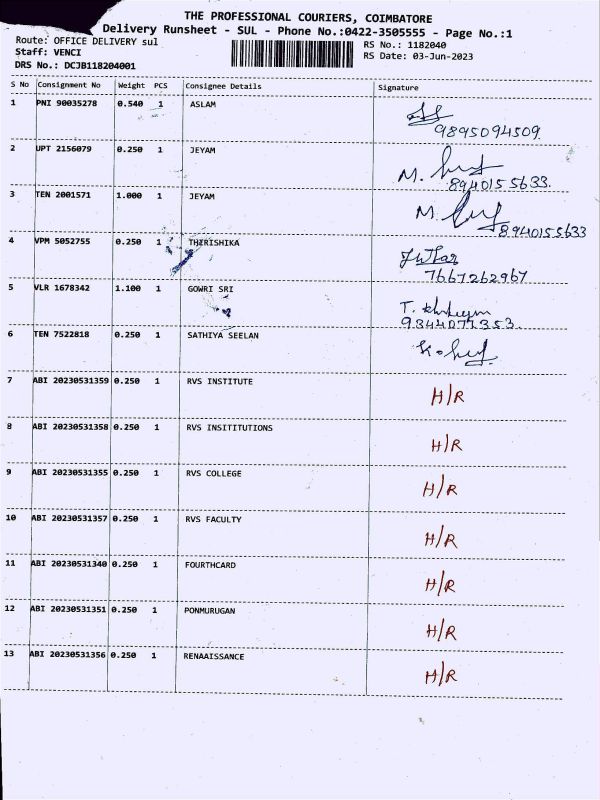 THE PROFESSIONAL COURIERS, COIMBATORE
Delivery Runsheet - SUL - Phone No.:0422-3505555 - Page No.:1
Route: OFFICE DELIVERY sul RS No.: 1182040
Staff: VENCI RS Date: 03-Jun-2023
DRS No.: DCJB118204001
S No Consignment No Weight PCS Consignee Details Signature
1 PNI 90035278 0.540 1 ASLAM
9895094509
2 UPT 2156079 0.250 1 JEYAM M.
8940155633
3 TEN 2001571 1.000 1 JEYAM M.
8940155633
4 VPM 5052755 0.250 1 THIRISHIKA
7667262967
5 VLR 1678342 1.100 1 GOWRI SRI T.
9344077353
6 TEN 7522818 0.250 1 SATHIYA SEELAN
7 ABI 20230531359 0.250 1 RVS INSTITUTE H/R
8 ABI 20230531358 0.250 1 RVS INSITITUTIONS H/R
9 ABI 20230531355 0.250 1 RVS COLLEGE H/R
10 ABI 20230531357 0.250 1 RVS FACULTY H/R
11 ABI 20230531340 0.250 1 FOURTHCARD H/R
12 ABI 20230531351 0.250 1 PONMURUGAN H/R
13 ABI 20230531356 0.250 1 RENAAISSANCE H/R